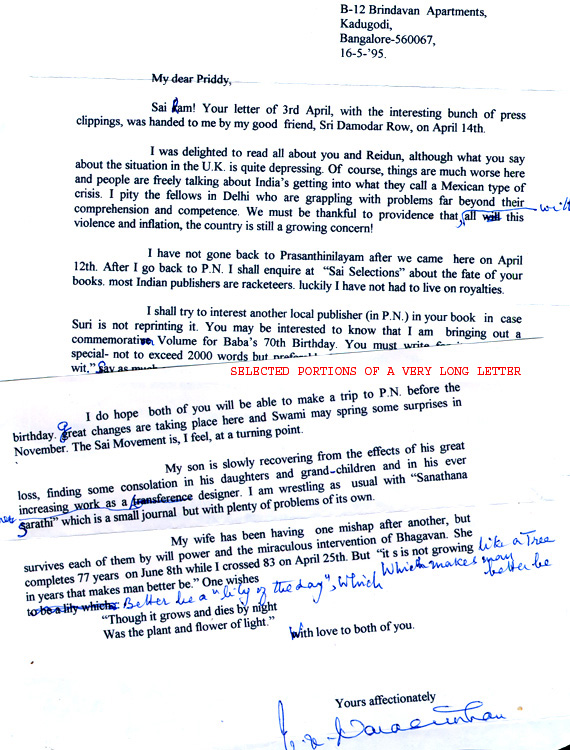 B-12 Brindavan Apartments,
Kadugodi,
Bangalore-560067,
16-5-'95.
My dear Priddy,
Sai Ram! Your letter of 3rd April, with the interesting bunch of press
clippings, was handed to me by my good friend, Sri Damodar Row, on April 14th.
I was delighted to read all about you and Reidun, although what you say
about the situation in the U.K. is quite depressing. Of course, things are much worse here
and people are freely talking about India's getting into what they call a Mexican type of
crisis. I pity the fellows in Delhi who are grappling with problems far beyond their
comprehension and competence. We must be thankful to providence that, with all this
violence and inflation, the country is still a growing concern!
I have not gone back to Prasanthinilayam after we came here on April
12th. After I go back to P.N. I shall enquire at "Sai Selections" about the fate of your
books. most Indian publishers are racketeers. luckily I have not had to live on royalties.
I shall try to interest another local publisher (in P.N.) in your book in case
Suri is not reprinting it. You may be interested to know that I am bringing out a
commemorative Volume for Baba's 70th Birthday. You must write
special- not to exceed 2000 words but
wit," Say as much
SELECTED PORTIONS OF A VERY LONG LETTER
I do hope both of you will be able to make a trip to P.N. before the
birthday. Great changes are taking place here and Swami may spring some surprises in
November. The Sai Movement is, I feel, at a turning point.
My son is slowly recovering from the effects of his great
loss, finding some consolation in his daughters and grand-children and in his ever
increasing work as a designer. I am wrestling as usual with "Sanathana
Sarathi" which is a small journal but with plenty of problems of its own.
My wife has been having one mishap after another, but
survives each of them by will power and the miraculous intervention of Bhagavan. She
completes 77 years on June 8th while I crossed 83 on April 25th. But "it s is not growing like a Tree
in years that makes man better be." One wishes Which makes man better be
to be a lily which: Better be a "lily of the day", Which
"Though it grows and dies by night
Was the plant and flower of light."
With love to both of you.
Yours affectionately